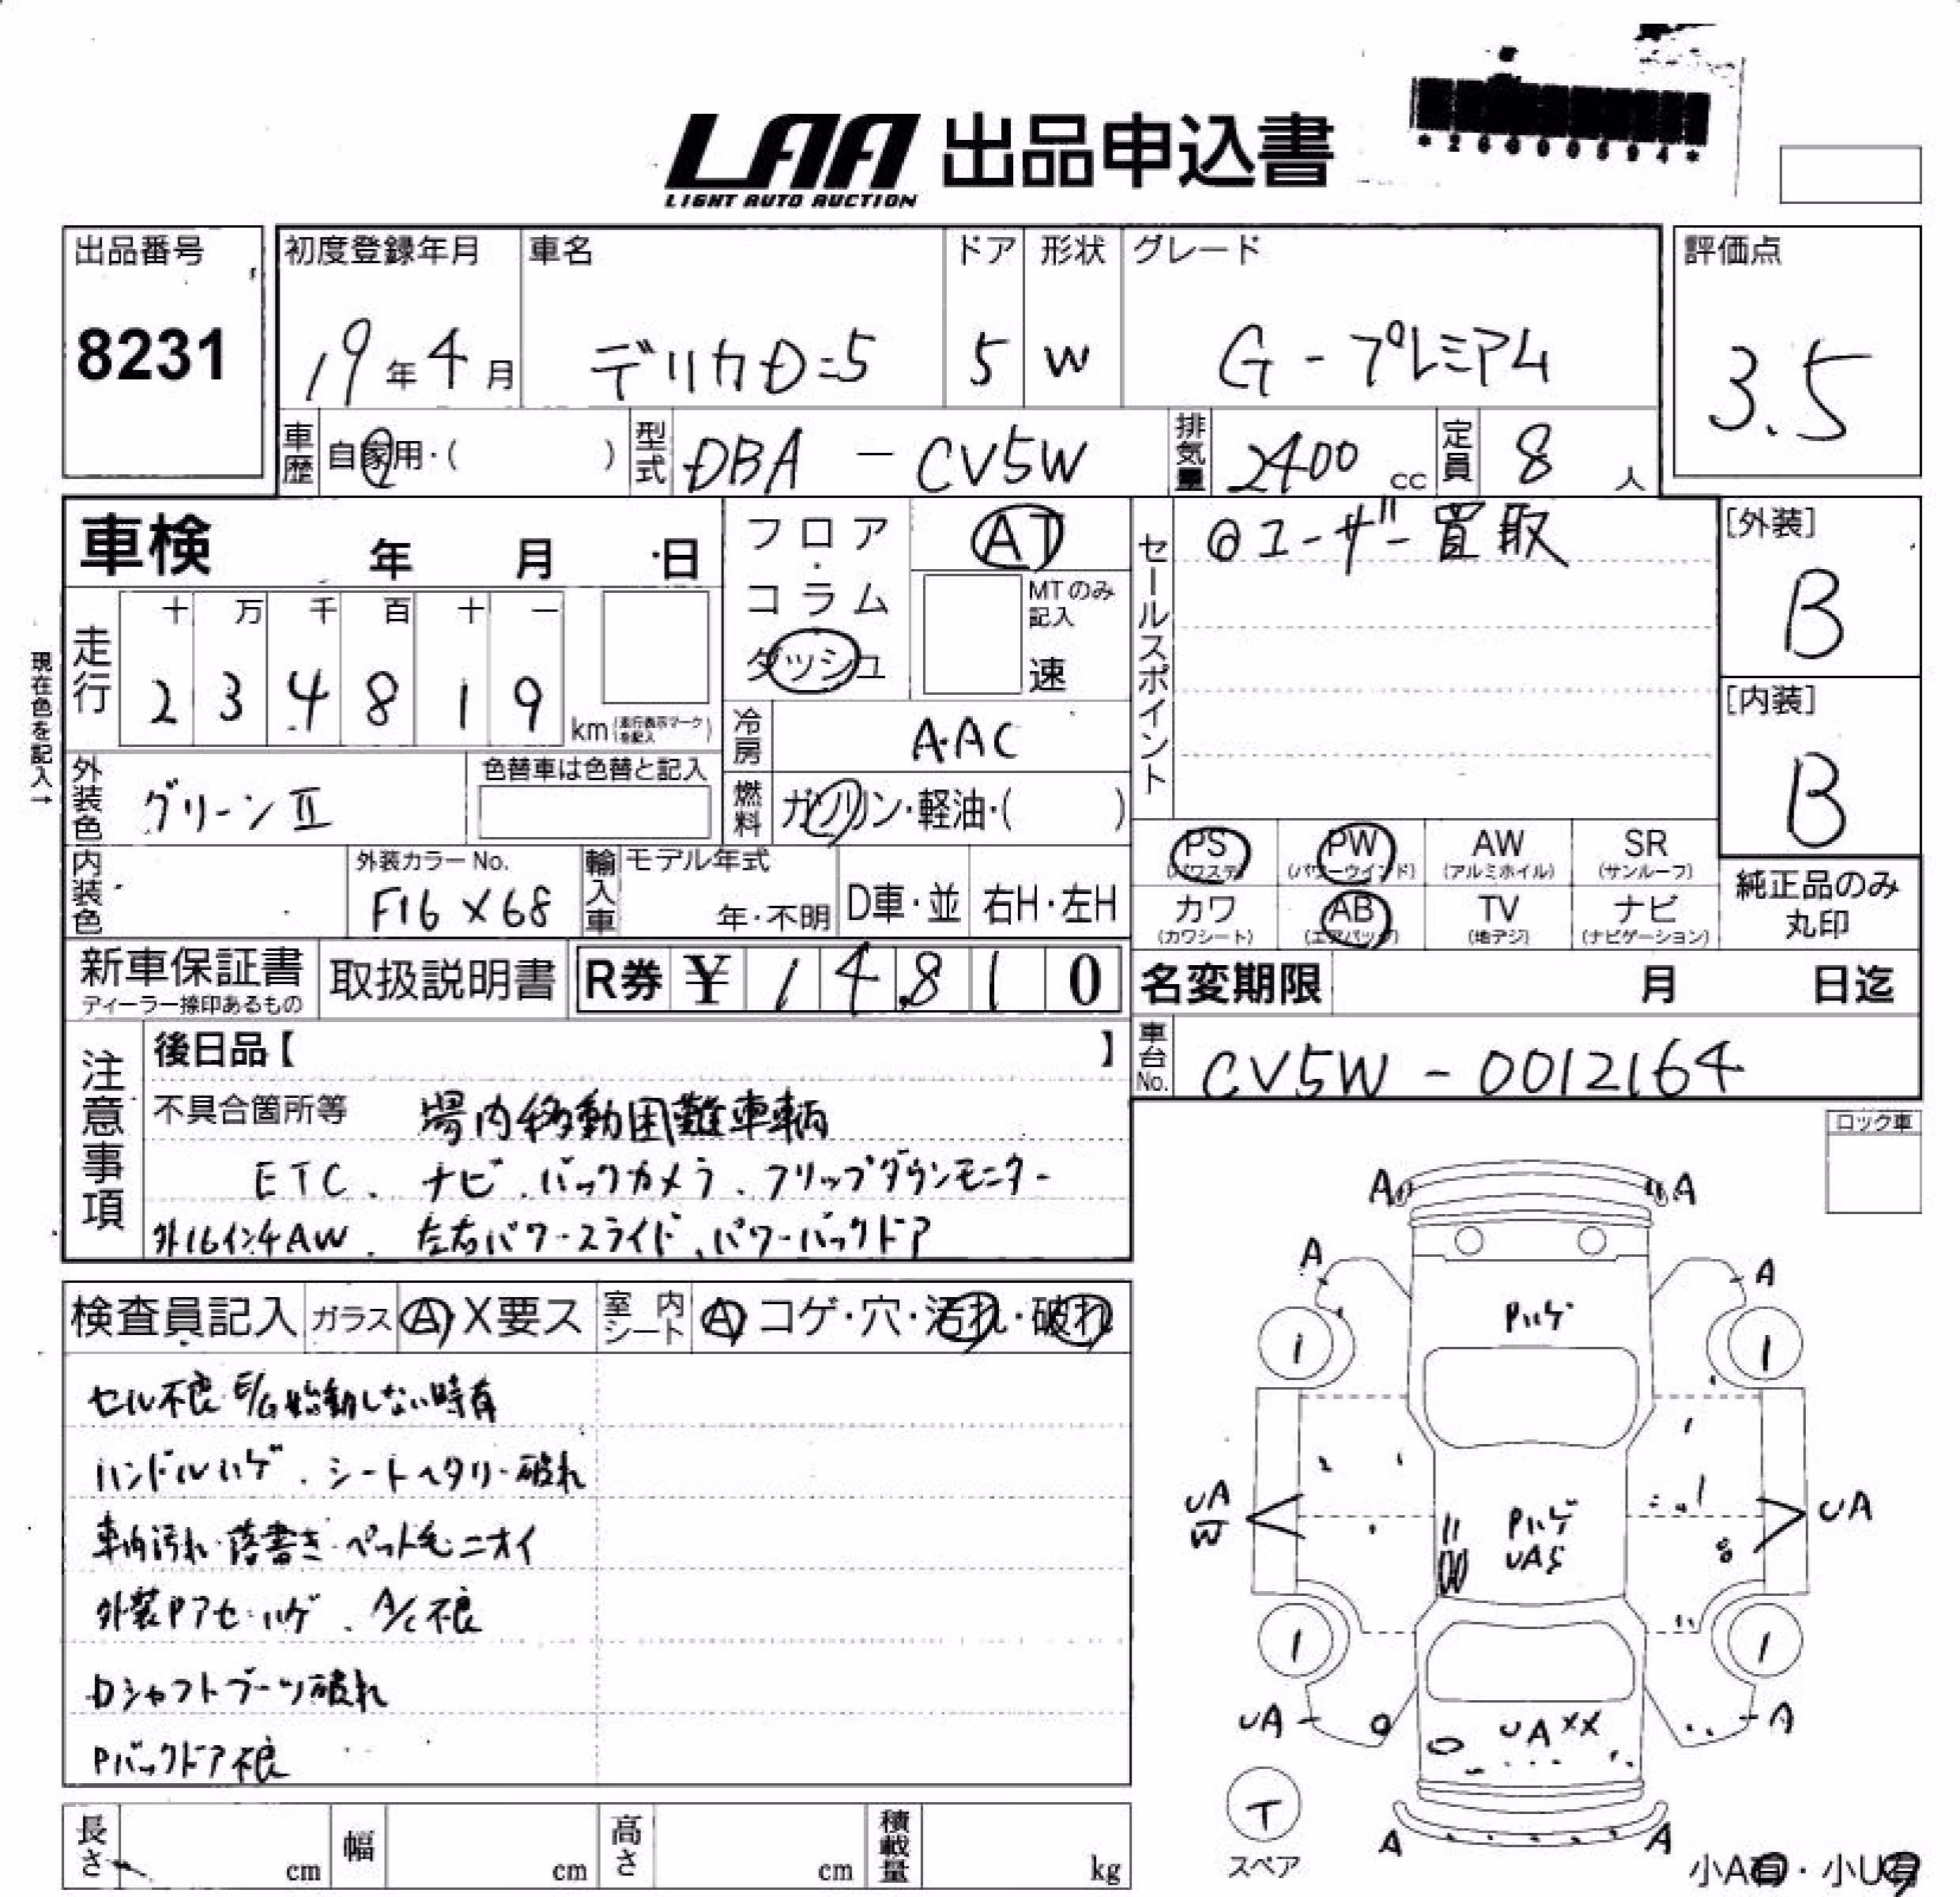 LAA 出品申込書
LIGHT AUTO AUCTION
*26000594*
出品番号
8231
初度登録年月 車名 ドア 形状 グレード
19年4月 デリカD=5 5 W G-プレミアム
評価点
3.5
車歴 自家用・( ) 型式 DBA-CV5W 排気量 2400cc 定員 8人
車検 年 月 日
フロア・コラム ダッシュ
AT
MTのみ記入
速
セールスポイント
◎ユーザー買取
[外装]
B
[内装]
B
現在色を記入→
走行 十 万 千 百 十 一
2 3 4 8 1 9 km(走行表示マークを記入)
冷房 A・AC
外装色 グリーンⅡ 色替車は色替と記入
燃料 ガソリン・軽油・( )
PS(パワステ) PW(パワーウインド) AW(アルミホイル) SR(サンルーフ)
カワ(カワシート) AB(エアバッグ) TV(地デジ) ナビ(ナビゲーション)
純正品のみ丸印
内装色 外装カラーNo. F16×68 輸入車 モデル年式 年・不明 D車・並 右H・左H
新車保証書 ディーラー捺印あるもの 取扱説明書 R券 ¥ 14,810
名変期限 月 日迄
車台No. CV5W-0012164
注意事項
後日品【 】
不具合箇所等 場内移動困難車輌
ETC. ナビ.バックカメラ.フリップダウンモニター
外16インチAW. 左右パワースライド、パワーバックドア
ロック車
検査員記入 ガラス A X要ス 室内シート A コゲ・穴・汚れ・破れ
セル不良 E/G始動しない時有
ハンドルハゲ.シートヘタリ・破れ
車内汚れ・落書き・ペット毛・ニオイ
外装Pアセ・ハゲ.A/C不良
Dシャフトブーツ破れ
Pバックドア不良
A A
A A
Pハゲ
1 1
UA
W
Pハゲ
UAS
UA
1 1
UA UAXX A
T
スペア
A A
長さ cm 幅 cm 高さ cm 積載量 kg
小A有・小U有